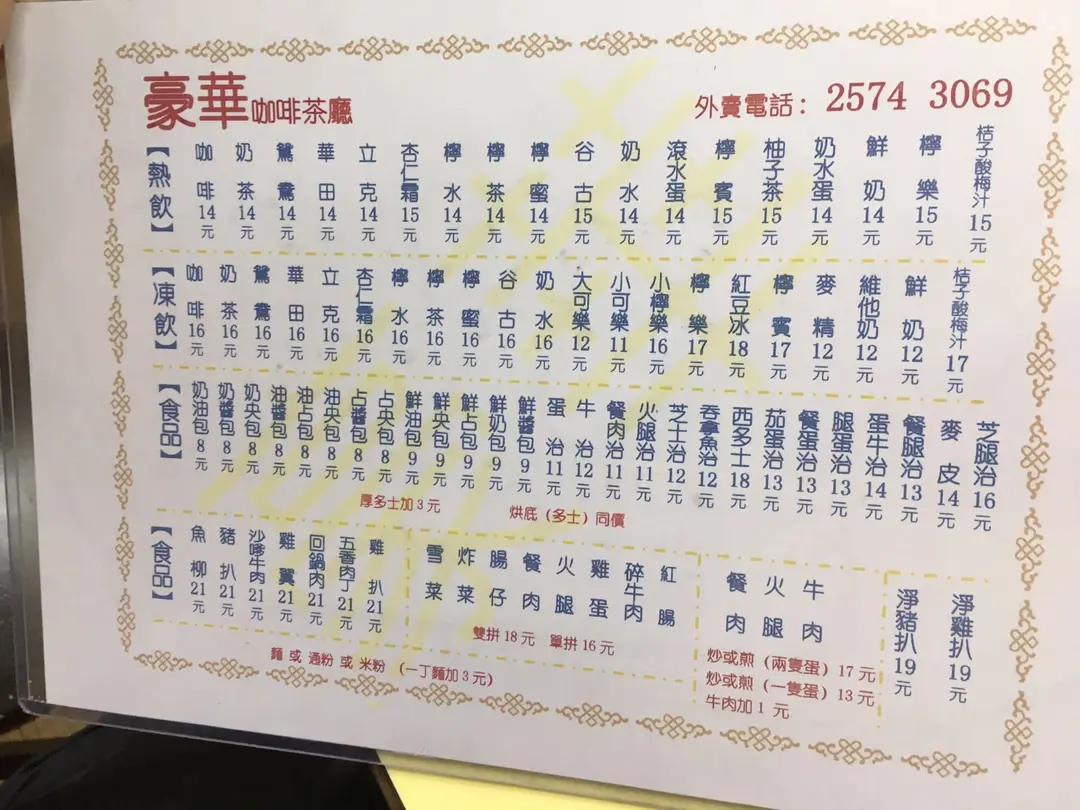 豪華咖啡茶廳
外賣電話：2574 3069
【熱飲】
咖啡14元
奶茶14元
鴛鴦14元
華田14元
立克14元
杏仁霜15元
檸水14元
檸茶14元
檸蜜14元
谷古15元
奶水14元
滾水蛋14元
檸賓15元
柚子茶15元
奶水蛋14元
鮮奶14元
檸樂15元
桔子酸梅汁15元
【凍飲】
咖啡16元
奶茶16元
鴛鴦16元
華田16元
立克16元
杏仁霜16元
檸水16元
檸茶16元
檸蜜16元
谷古16元
奶水16元
大可樂12元
小可樂11元
小檸樂16元
檸樂17元
紅豆冰18元
檸賓17元
麥精12元
維他奶12元
鮮奶12元
桔子酸梅汁17元
【食品】
奶油包8元
奶醬包8元
奶央包8元
油醬包8元
油占包8元
油央包8元
占醬包8元
占央包8元
鮮油包9元
鮮央包9元
鮮占包9元
鮮奶包9元
鮮醬包9元
蛋治11元
牛治12元
餐肉治11元
火腿治11元
芝士治12元
吞拿魚治12元
西多士18元
茄蛋治13元
餐蛋治13元
腿蛋治13元
蛋牛治14元
餐腿治13元
麥皮14元
芝腿治16元
厚多士加3元
烘底（多士）同價
【食品】
魚柳21元
豬扒21元
沙嗲牛肉21元
雞翼21元
回鍋肉21元
五香肉丁21元
雞扒21元
麵 或 通粉 或 米粉 （一丁麵加3元）
雪菜
炸菜
腸仔
餐肉
火腿
雞蛋
碎牛肉
紅腸
雙拼18元 單拼16元
餐肉
火腿
牛肉
炒或煎（兩隻蛋）17元
炒或煎（一隻蛋）13元
牛肉加1 元
淨豬扒19元
淨雞扒19元